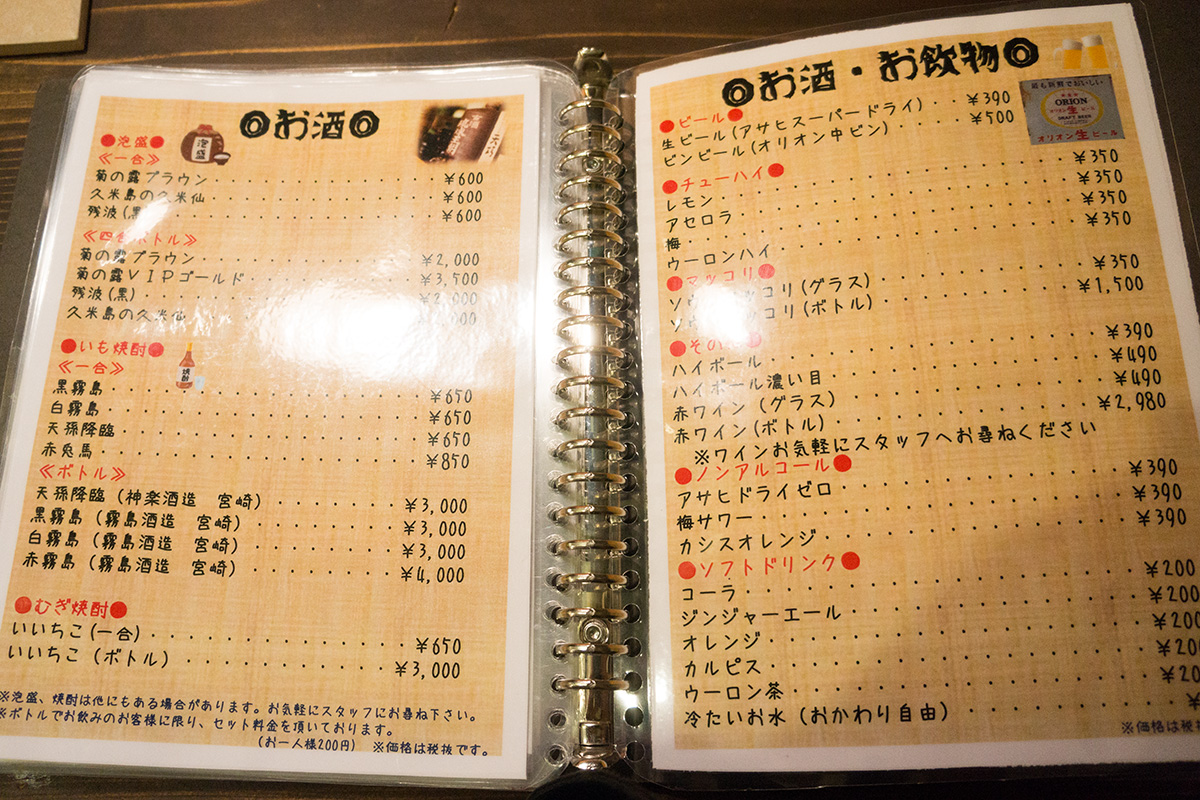 ◎お酒◎
●泡盛●
泡盛
≪一合≫
菊の露ブラウン・・・・・・・・・・・・¥600
久米島の久米仙・・・・・・・・・・・・¥600
残波(黒)・・・・・・・・・・・・¥600
≪四合ボトル≫
菊の露ブラウン・・・・・・・・・・・・¥2,000
菊の露VIPゴールド・・・・・・・・・・¥3,500
残波(黒)・・・・・・・・・・・・¥2,000
久米島の久米仙・・・・・・・・・・・・,000
●いも焼酎●
焼酎
≪一合≫
黒霧島・・・・・・・・・・・・¥650
白霧島・・・・・・・・・・・・¥650
天孫降臨・・・・・・・・・・・・¥650
赤兎馬・・・・・・・・・・・・¥850
≪ボトル≫
天孫降臨(神楽酒造 宮崎)・・・・・・¥3,000
黒霧島(霧島酒造 宮崎)・・・・・・・¥3,000
白霧島(霧島酒造 宮崎)・・・・・・・¥3,000
赤霧島(霧島酒造 宮崎)・・・・・・・¥4,000
●むぎ焼酎●
いいちこ(一合)・・・・・・・・・・・・¥650
いいちこ(ボトル)・・・・・・・・・・¥3,000
※泡盛、焼酎は他にもある場合があります。お気軽にスタッフにお尋ね下さい。
※ボトルでお飲みのお客様に限り、セット料金を頂いております。
(お一人様200円) ※価格は税抜です。
◎お酒・お飲物◎
最も新鮮でおいしい
ORION
生
DRAFT BEER
オリオン生ビール
●ビール●
生ビール(アサヒスーパードライ)・・¥390
ビンビール(オリオン中ビン)・・・・¥500
●チューハイ●
レモン・・・・・・・・・・・・¥350
アセロラ・・・・・・・・・・・・¥350
梅・・・・・・・・・・・・¥350
ウーロンハイ・・・・・・・・・・・・¥350
●マッコリ●
ソウルマッコリ(グラス)・・・・・・・・¥350
ソウルマッコリ(ボトル)・・・・・・・・¥1,500
●その
ハイボール・・・・・・・・・・・・¥390
ハイボール濃い目・・・・・・・・・・・・¥490
赤ワイン(グラス)・・・・・・・・・・¥490
赤ワイン(ボトル)・・・・・・・・・・¥2,980
※ワインお気軽にスタッフへお尋ねください
●ノンアルコール●
アサヒドライゼロ・・・・・・・・・・・・¥390
梅サワー・・・・・・・・・・・・¥390
カシスオレンジ・・・・・・・・・・・・¥390
●ソフトドリンク●
コーラ・・・・・・・・・・・・¥200
ジンジャーエール・・・・・・・・・・・・¥200
オレンジ・・・・・・・・・・・・¥200
カルピス・・・・・・・・・・・・¥20
ウーロン茶・・・・・・・・・・・・¥20
冷たいお水(おかわり自由)・・・・・・・・¥
※価格は税抜